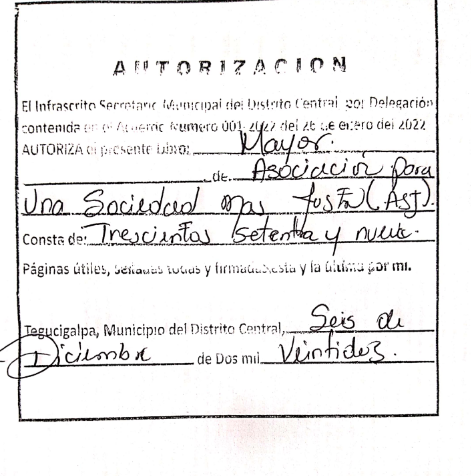 AUTORIZACION
El Infrascrito Secretario Municipal del Distrito Central por Delegación
contenida en el Acuerdo Numero 001-2022 del 26 de enero del 2022
AUTORIZA el presente Libro: Mayor.
de Asociación para
Una Sociedad mas Justa (ASJ).
Consta de: Trescientas setenta y nueve.
Páginas útiles, selladas todas y firmadas esta y la última por mi.
Tegucigalpa, Municipio del Distrito Central, Seis de
Diciembre de Dos mil Veintidos.